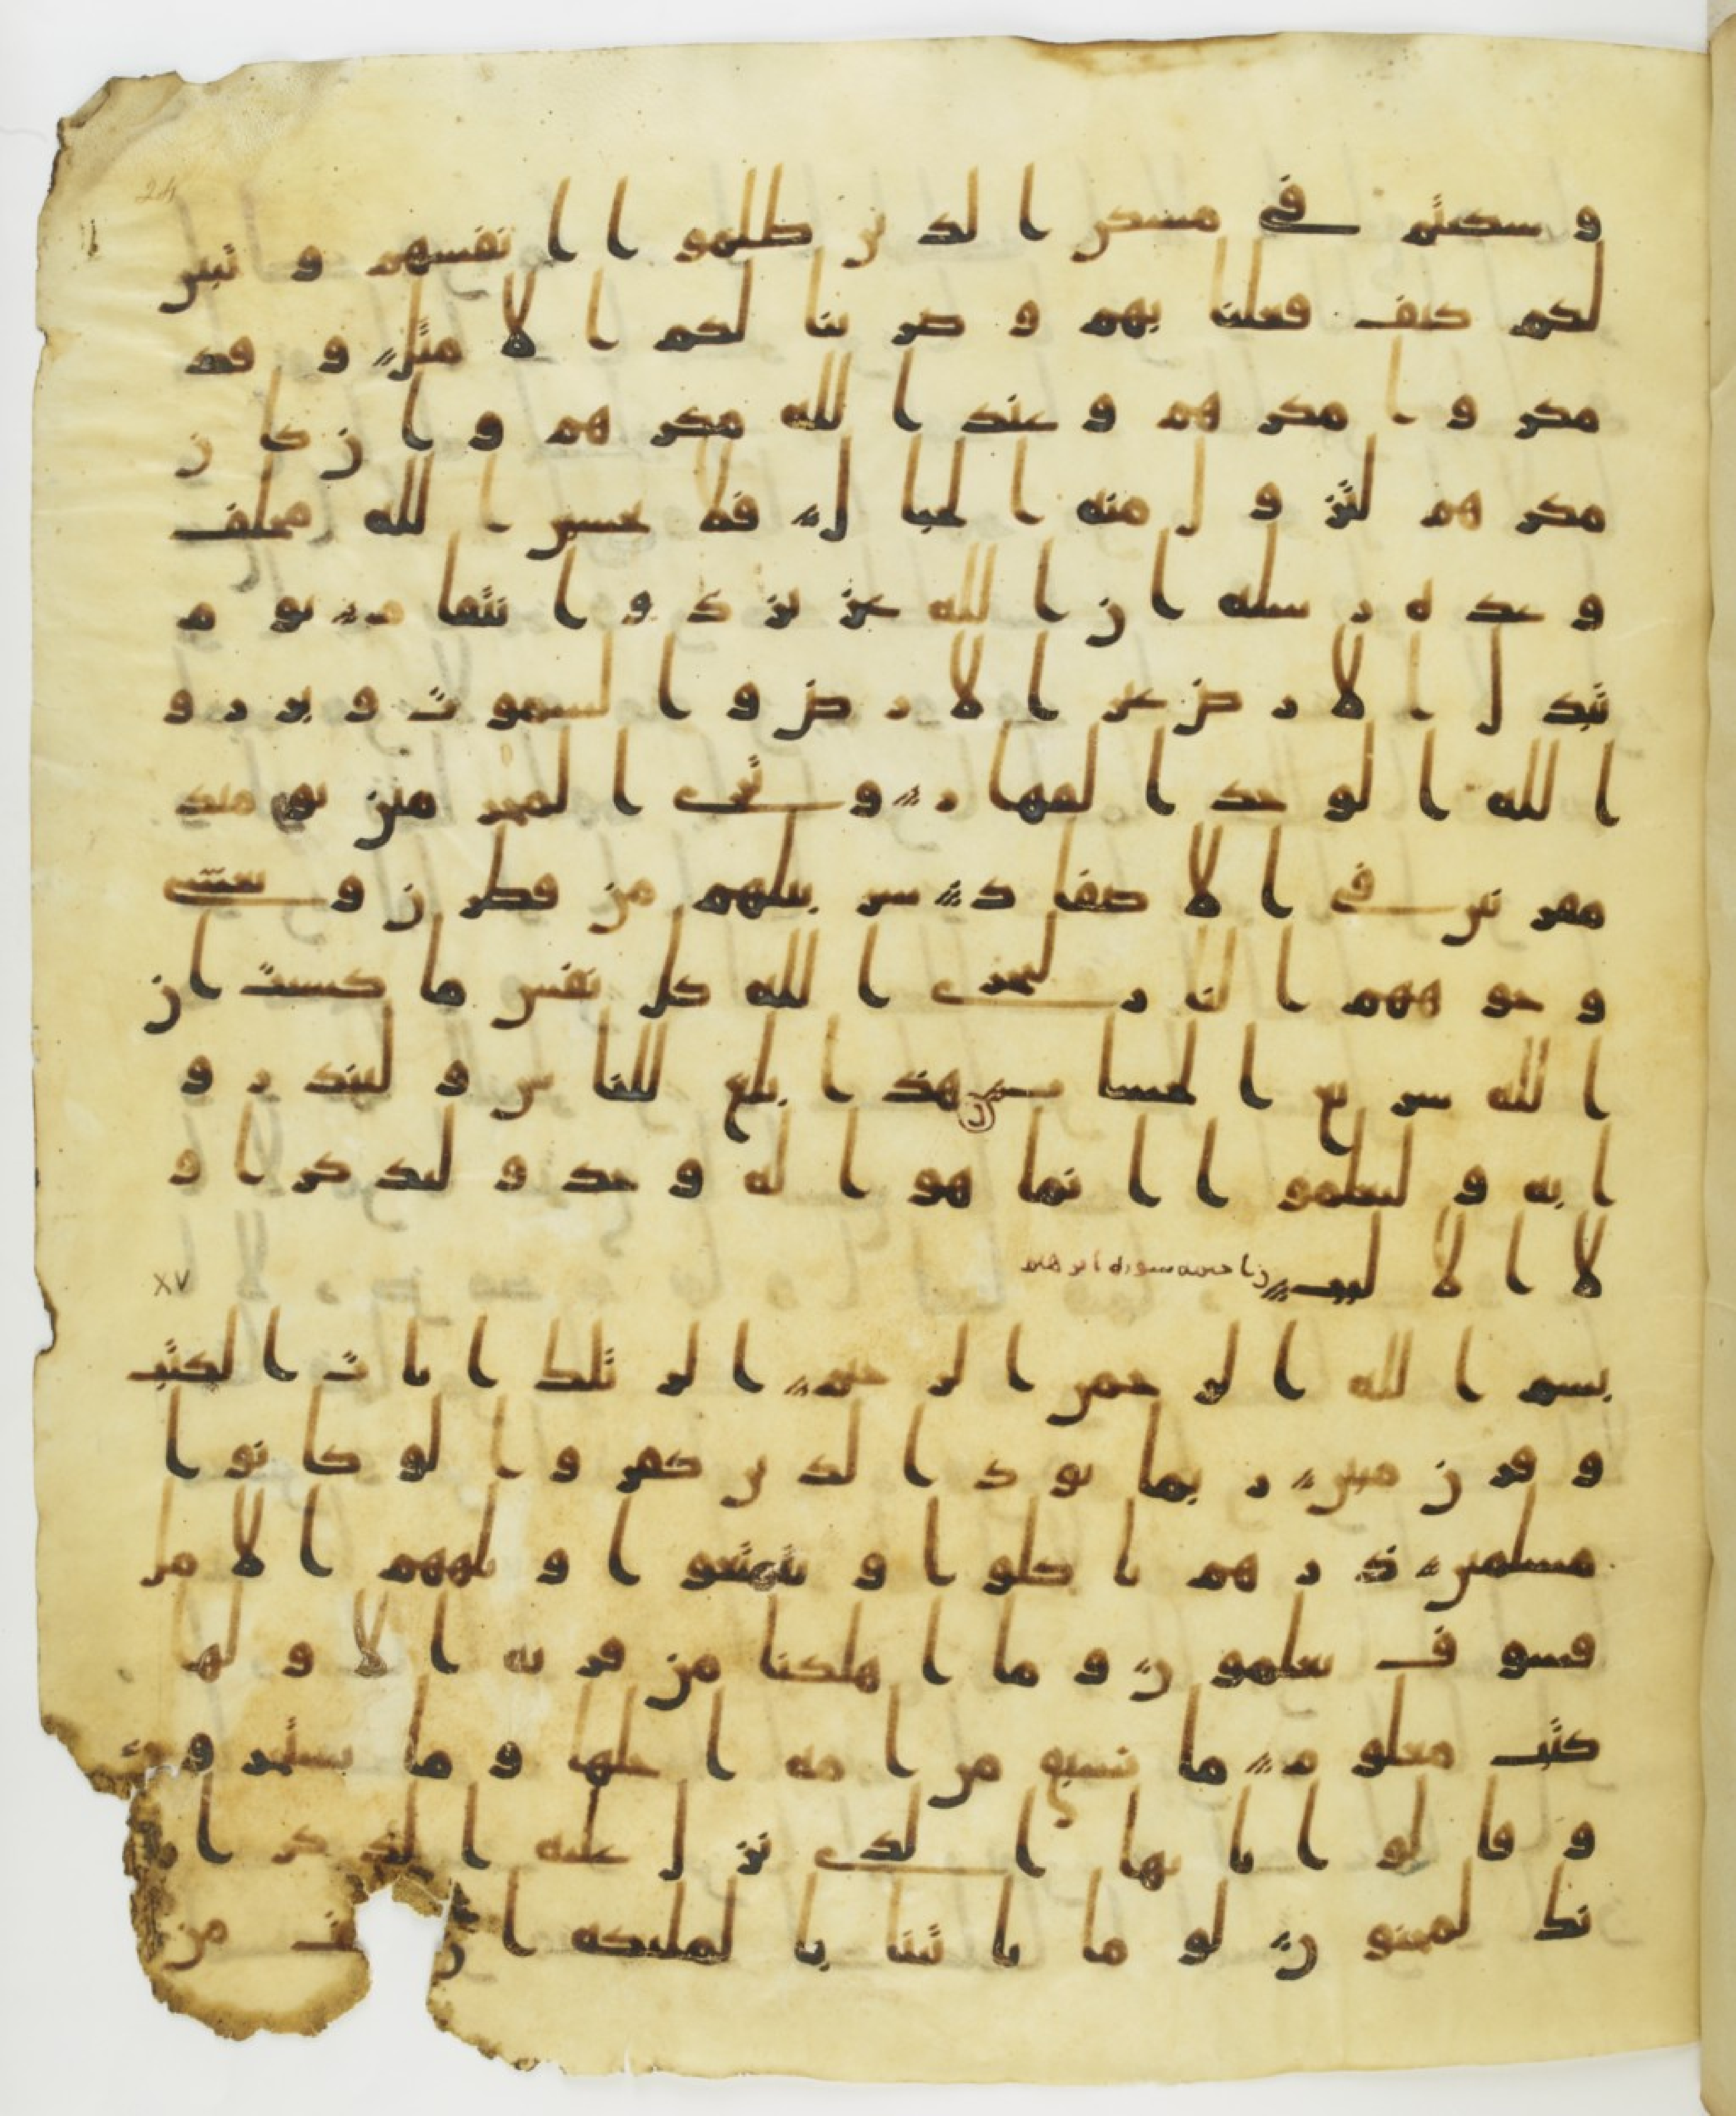 و سكنتم في مسكن الذين ظلموا انفسهم و تبين
لكم كيف فعلنا بهم و ضربنا لكم الامثل و قد
مكروا مكرهم و عند الله مكرهم و ان كان
مكرهم لتزول منه الجبال فلا تحسبن الله مخلف
وعده رسله ان الله عزيز ذو انتقام يوم
تبدل الارض غير الارض و السموت و برزو
ا لله الوحد القهار و ترى المجرمين يومئذ
مقرنين في الاصفاد سربيلهم من قطرن و تغشى
وجوههم النار ليجزى الله كل نفس ما كسبت ان
الله سريع الحساب هذا بلغ للناس و لينذرو
ا به و ليعلموا انما هو اله وحد و ليذكر او
لا الالبب خاتمه سوره ابرهيم
XV
بسم الله الرحمن الرحيم الر تلك ايات الكتب
و قرن مبين ربما يود الذين كفروا لو كانوا
مسلمين ذرهم ياكلوا و يتمتعوا و يلههم الامل
فسوف يعلمون و ما اهلكنا من قريه الا و لها
كتب معلوم ما تسبق من امه اجلها و ما يستخرون
و قالوا يايها الذي نزل عليه الذكر ا
نك لمجنون لو ما تاتنا بالمليكه ان من